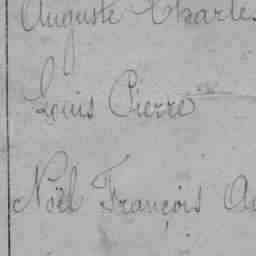 Auguste Charles
Louis Pierre
Noël François